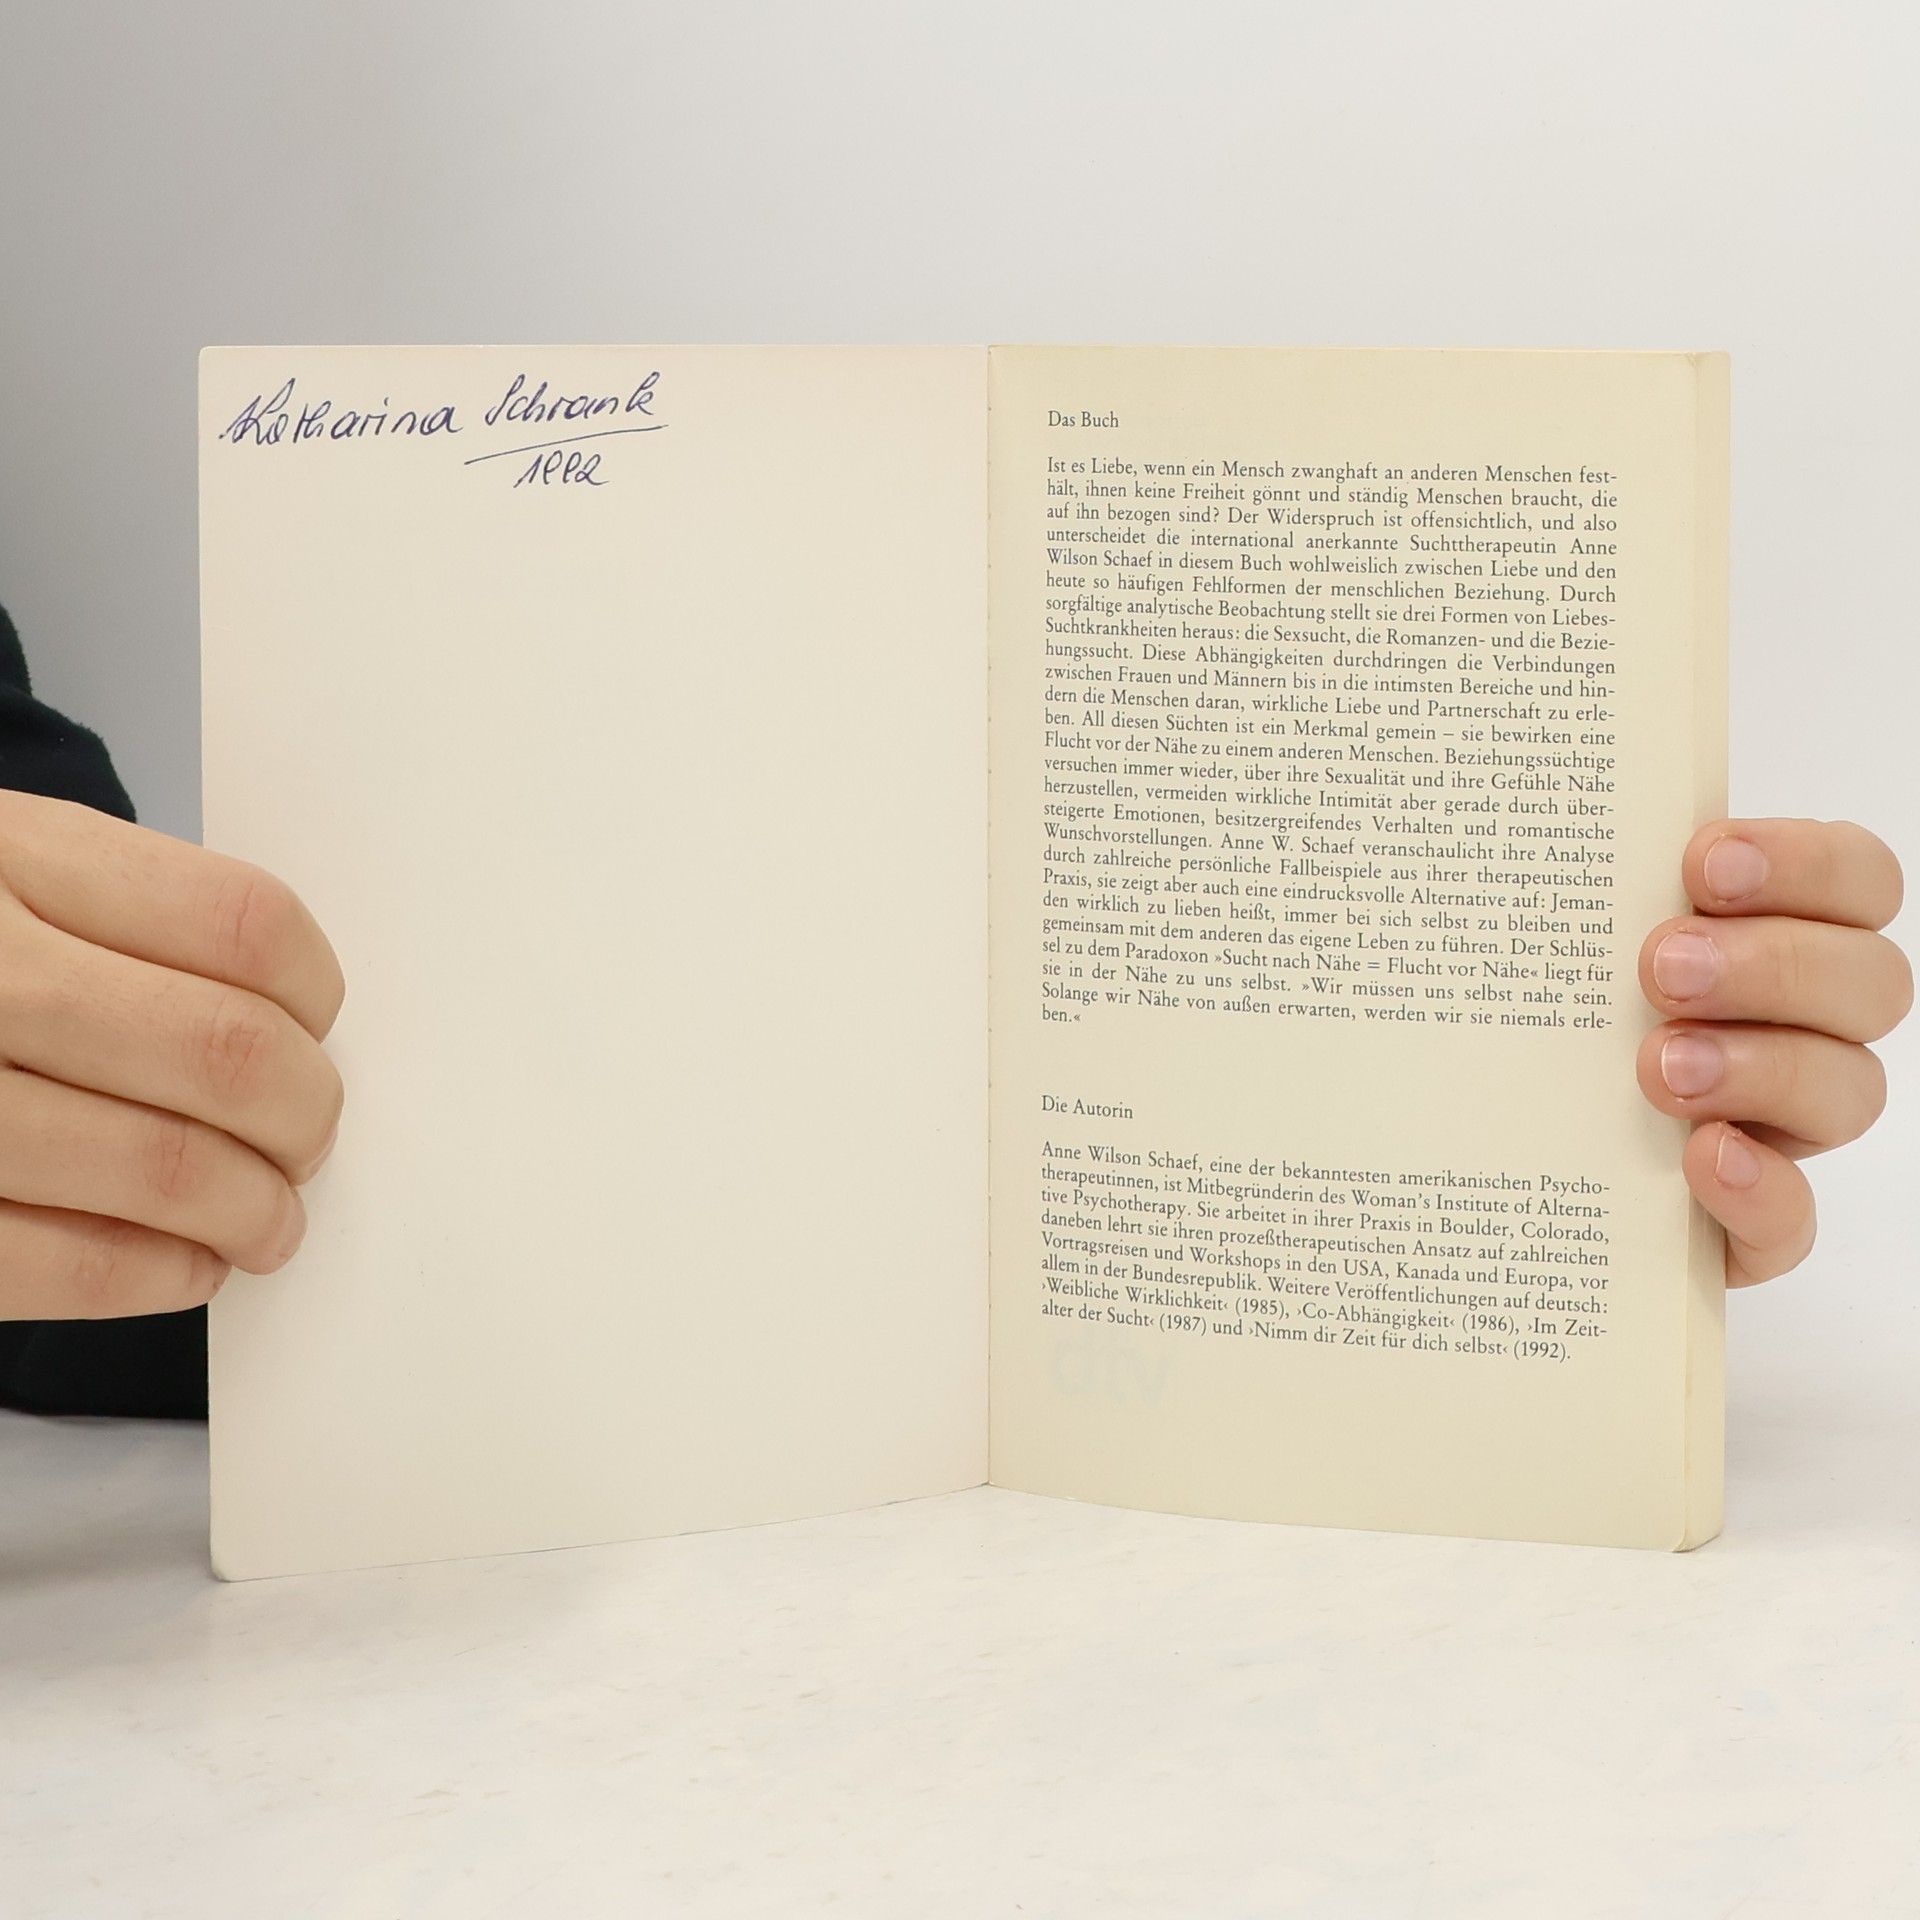 Katharina Schrank
1992
Das Buch
Ist es Liebe, wenn ein Mensch zwanghaft an anderen Menschen fest-
hält, ihnen keine Freiheit gönnt und ständig Menschen braucht, die
auf ihn bezogen sind? Der Widerspruch ist offensichtlich, und also
unterscheidet die international anerkannte Suchttherapeutin Anne
Wilson Schaef in diesem Buch wohlweislich zwischen Liebe und den
heute so häufigen Fehlformen der menschlichen Beziehung. Durch
sorgfältige analytische Beobachtung stellt sie drei Formen von Liebes-
Suchtkrankheiten heraus: die Sexsucht, die Romanzen- und die Bezie-
hungssucht. Diese Abhängigkeiten durchdringen die Verbindungen
zwischen Frauen und Männern bis in die intimsten Bereiche und hin-
dern die Menschen daran, wirkliche Liebe und Partnerschaft zu erle-
ben. All diesen Süchten ist ein Merkmal gemein – sie bewirken eine
Flucht vor der Nähe zu einem anderen Menschen. Beziehungssüchtige
versuchen immer wieder, über ihre Sexualität und ihre Gefühle Nähe
herzustellen, vermeiden wirkliche Intimität aber gerade durch über-
steigerte Emotionen, besitzergreifendes Verhalten und romantische
Wunschvorstellungen. Anne W. Schaef veranschaulicht ihre Analyse
durch zahlreiche persönliche Fallbeispiele aus ihrer therapeutischen
Praxis, sie zeigt aber auch eine eindrucksvolle Alternative auf: Jeman-
den wirklich zu lieben heißt, immer bei sich selbst zu bleiben und
gemeinsam mit dem anderen das eigene Leben zu führen. Der Schlüs-
sel zu dem Paradoxon »Sucht nach Nähe = Flucht vor Nähe« liegt für
sie in der Nähe zu uns selbst. »Wir müssen uns selbst nahe sein.
Solange wir Nähe von außen erwarten, werden wir sie niemals erle-
ben.«
Die Autorin
Anne Wilson Schaef, eine der bekanntesten amerikanischen Psycho-
therapeutinnen, ist Mitbegründerin des Woman's Institute of Alterna-
tive Psychotherapy. Sie arbeitet in ihrer Praxis in Boulder, Colorado,
daneben lehrt sie ihren prozeßtherapeutischen Ansatz auf zahlreichen
Vortragsreisen und Workshops in den USA, Kanada und Europa, vor
allem in der Bundesrepublik. Weitere Veröffentlichungen auf deutsch:
›Weibliche Wirklichkeit‹ (1985), ›Co-Abhängigkeit‹ (1986), ›Im Zeit-
alter der Sucht‹ (1987) und ›Nimm dir Zeit für dich selbst‹ (1992).